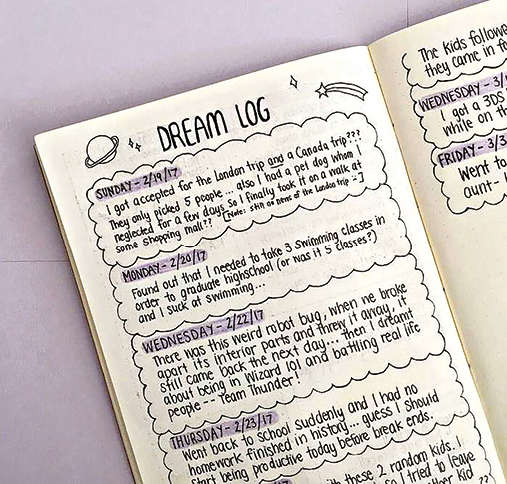 DREAM LOG
SUNDAY - 2/19/17
I got accepted for the London trip and a Canada trip???
They only picked 5 people... also I had a pet dog whom I
neglected for a few days so I finally took it on a walk at
some shopping mall?? [Note: still no news of the London trip :-]
MONDAY - 2/20/17
Found out that I needed to take 3 swimming classes in
order to graduate highschool (or was it 5 classes?)
and I suck at swimming...
WEDNESDAY - 2/22/17
There was this weird robot bug, when we broke
apart its interior parts and threw it away, it
still came back the next day... then I dreamt
about being in Wizard 101 and battling real life
people -- Team Thunder!
THURSDAY - 2/23/17
Went back to school suddenly and I had no
homework finished in history... guess I should
start being productive today before break ends.
with these 2 random kids. I
so I tried to leave
other kid
The kids followe
they came in
WEDNESDAY - 3/
I got a 3DS
while on th
FRIDAY - 3/3
Went to
aunt-